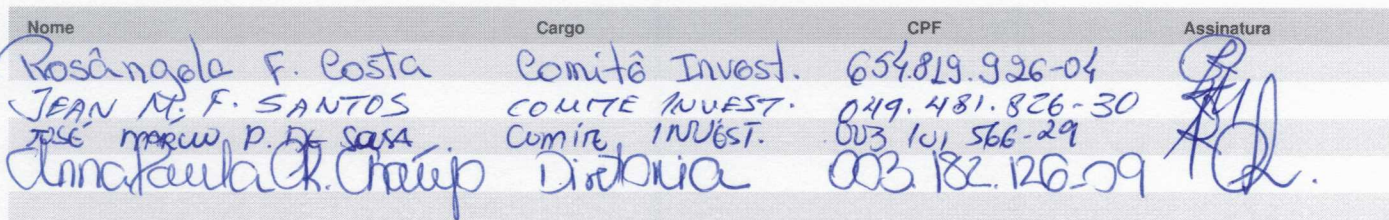 Nome Cargo CPF Assinatura
Rosângela F. Costa Comitê Invest. 654.819.926-04
JEAN M. F. SANTOS COMITE INVEST. 049.481.826-30
JOSÉ MARCIO P. DE SOUSA Comite INVEST. 003 101 566-29
Anna Paula R. Diretoria 003.182.126-09